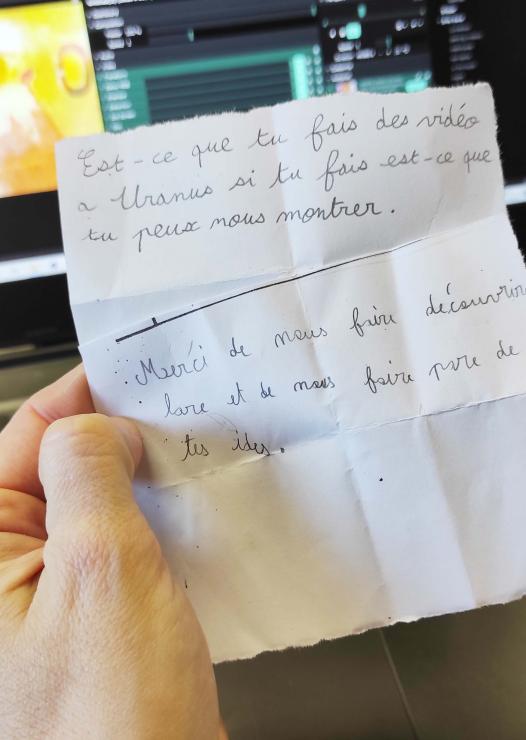 Est-ce que tu fais des vidéo
a Uranus si tu fais est-ce que
tu peux nous montrer.
Merci de nous faire découvrir
lare et de nous faire pare de
tes ides.